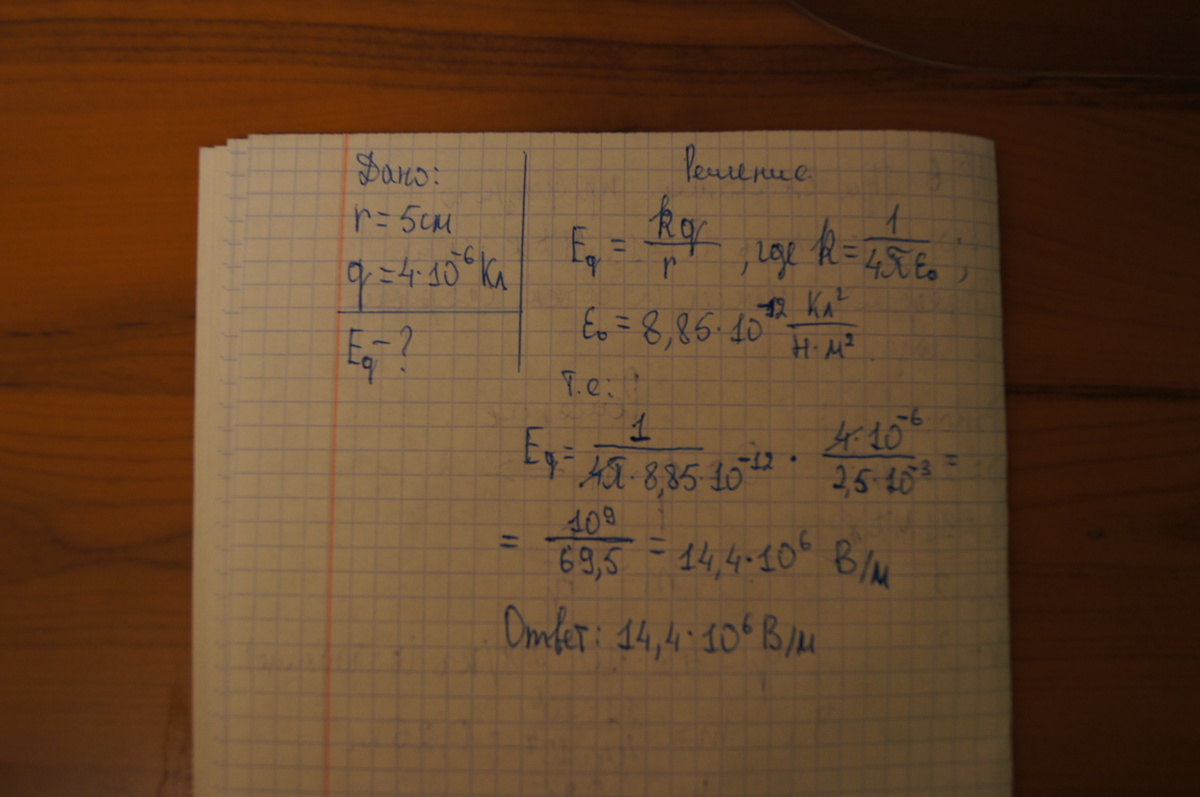 Дано:
r = 5см
q = 4·10⁻⁶ Кл
E_q – ?
Решение
E_q = kq/r , где k = 1/4πε₀ ;
ε₀ = 8,85·10⁻¹² Кл²/Н·м²
Т.е:
E_q = 1/4π·8,85·10⁻¹² · 4·10⁻⁶/2,5·10⁻³ =
= 10⁹/69,5 = 14,4·10⁶ В/м
Ответ: 14,4·10⁶ В/м